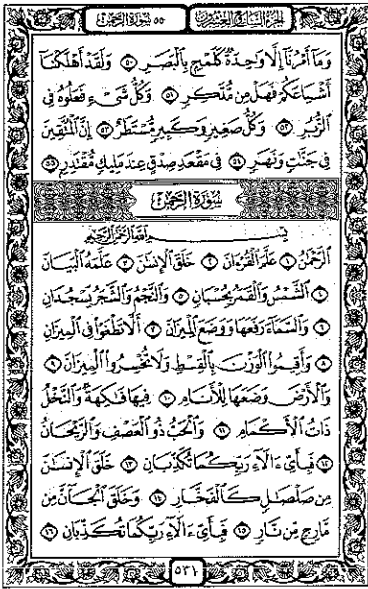 الجزء السابع والعشرون
٥٥ سورة الرحمن
وَمَآ أَمْرُنَآ إِلَّا وَٰحِدَةٌ كَلَمْحٍۭ بِٱلْبَصَرِ ٥٠ وَلَقَدْ أَهْلَكْنَآ
أَشْيَاعَكُمْ فَهَلْ مِن مُّدَّكِرٍ ٥١ وَكُلُّ شَىْءٍ فَعَلُوهُ فِى
ٱلزُّبُرِ ٥٢ وَكُلُّ صَغِيرٍ وَكَبِيرٍ مُّسْتَطَرٌ ٥٣ إِنَّ ٱلْمُتَّقِينَ
فِى جَنَّٰتٍ وَنَهَرٍ ٥٤ فِى مَقْعَدِ صِدْقٍ عِندَ مَلِيكٍ مُّقْتَدِرٍۭ ٥٥
سُورَةُ الرَّحْمَٰن
بِسْمِ ٱللَّهِ ٱلرَّحْمَٰنِ ٱلرَّحِيمِ
ٱلرَّحْمَٰنُ ١ عَلَّمَ ٱلْقُرْءَانَ ٢ خَلَقَ ٱلْإِنسَٰنَ ٣ عَلَّمَهُ ٱلْبَيَانَ
٤ ٱلشَّمْسُ وَٱلْقَمَرُ بِحُسْبَانٍ ٥ وَٱلنَّجْمُ وَٱلشَّجَرُ يَسْجُدَانِ
٦ وَٱلسَّمَآءَ رَفَعَهَا وَوَضَعَ ٱلْمِيزَانَ ٧ أَلَّا تَطْغَوْا۟ فِى ٱلْمِيزَانِ
٨ وَأَقِيمُوا۟ ٱلْوَزْنَ بِٱلْقِسْطِ وَلَا تُخْسِرُوا۟ ٱلْمِيزَانَ ٩
وَٱلْأَرْضَ وَضَعَهَا لِلْأَنَامِ ١٠ فِيهَا فَٰكِهَةٌ وَٱلنَّخْلُ
ذَاتُ ٱلْأَكْمَامِ ١١ وَٱلْحَبُّ ذُو ٱلْعَصْفِ وَٱلرَّيْحَانُ
١٢ فَبِأَىِّ ءَالَآءِ رَبِّكُمَا تُكَذِّبَانِ ١٣ خَلَقَ ٱلْإِنسَٰنَ
مِن صَلْصَٰلٍ كَٱلْفَخَّارِ ١٤ وَخَلَقَ ٱلْجَآنَّ مِن
مَّارِجٍ مِّن نَّارٍ ١٥ فَبِأَىِّ ءَالَآءِ رَبِّكُمَا تُكَذِّبَانِ ١٦
٥٣١